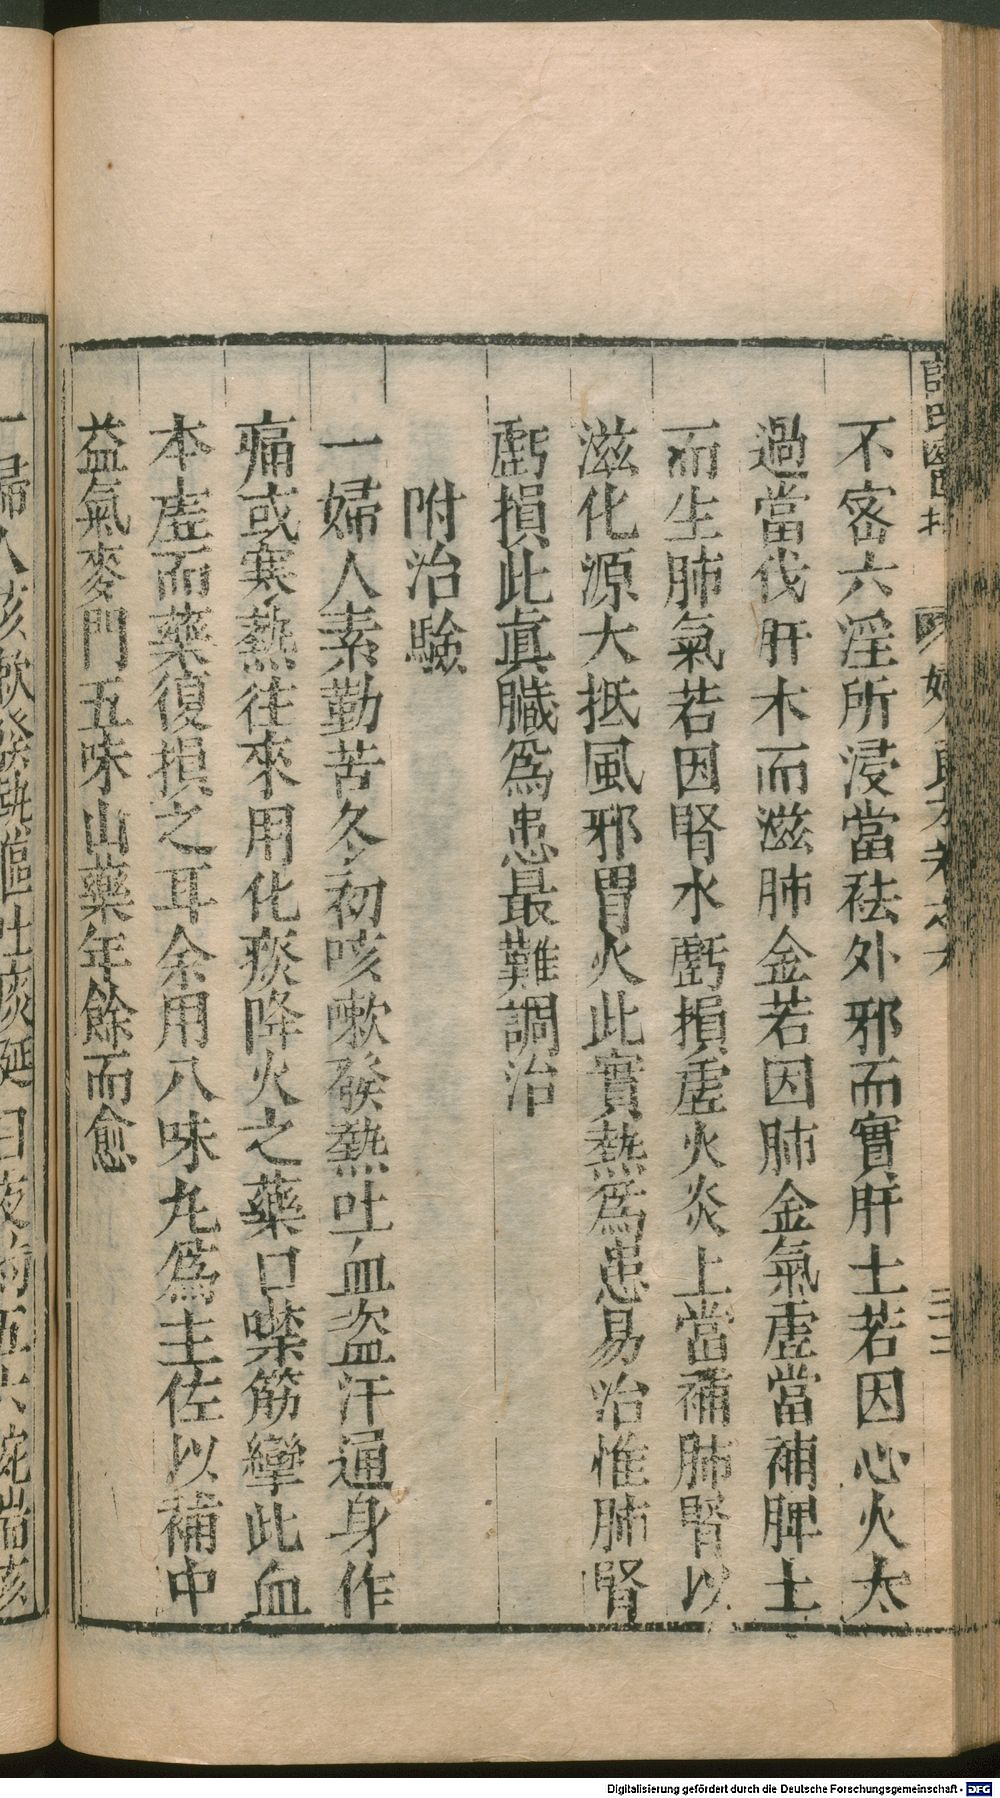 不密六淫所浸當祛外邪而實肝土若因心火太
過當伐肝木而滋肺金若因肺金氣虛當補脾土
而生肺氣若因腎水虧損虛火炎上當補肺腎以
滋化源大抵風邪胃火此實熱為患易治惟肺腎
虧損此眞臟為患最難調治
附治驗
一婦人素勤苦冬初咳嗽發熱吐血盗汗通身作
痛或寒熱往來用化痰降火之藥口噤筋攣此血
本虛而藥復損之耳余用八味丸為主佐以補中
益氣麥門五味山藥年餘而愈
一婦人咳嗽發熱嘔吐痰涎日夜約五六碗喘咳
Digitalisierung gefördert durch die Deutsche Forschungsgemeinschaft - DFG